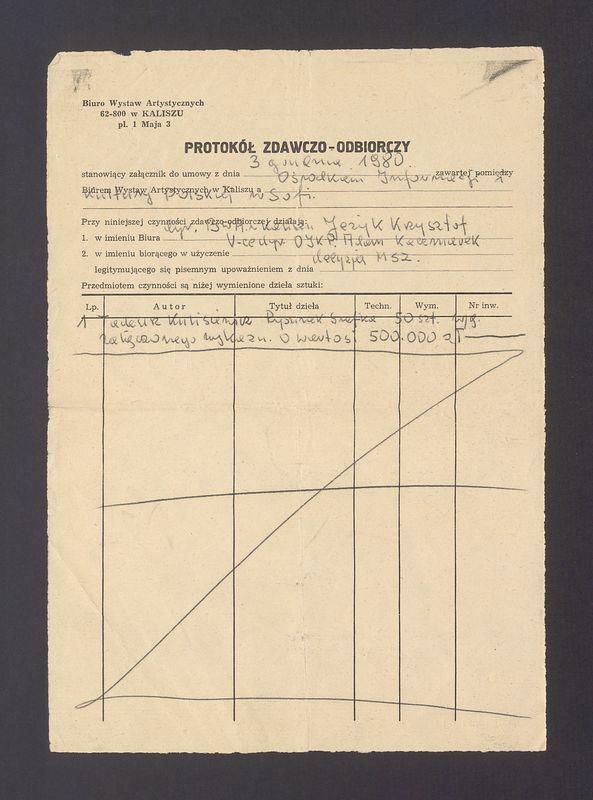 Biuro Wystaw Artystycznych
62-800 w KALISZU
pl. 1 Maja 3
PROTOKÓŁ ZDAWCZO-ODBIORCZY
stanowiący załącznik do umowy z dnia 3 grudnia 1980 zawartej pomiędzy
Biurem Wystaw Artystycznych w Kaliszu a Ośrodkiem Informacji i
Kultury Polskiej w Sofii.
Przy niniejszej czynności zdawczo-odbiorczej działają:
1. w imieniu Biura dyr. BWA Kalisz Jeżyk Krzysztof
2. w imieniu biorącego w użyczenie V-ce dyr OIKP. Adam Kaczmarek
legitymującego się pisemnym upoważnieniem z dnia decyzja MSZ.
Przedmiotem czynności są niżej wymienione dzieła sztuki:
Lp. Autor Tytuł dzieła Techn. Wym. Nr inw.
1 Tadeusz Kuliściewicz Rysunek 50 szt. wg.
załączonego 500.000 zł